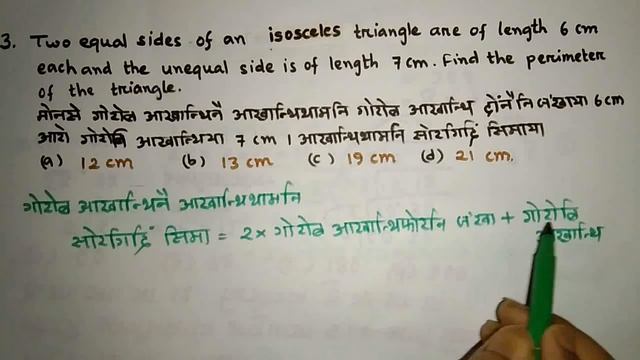 3. Two equal sides of an isosceles triangle are of length 6 cm
each and the unequal side is of length 7 cm. Find the perimeter
of the triangle.
मोनसे गोरोब आखान्थिनै आखान्थिथामनि गोरोब आखान्थि दोंनैनि जंखाया 6 cm
आरो गोरोबि आखान्थिया 7 cm । आखान्थिथामनि सोरगिद्रिं सिमाया
(a) 12 cm (b) 13 cm (c) 19 cm (d) 21 cm.
गोरोब आखान्थिनै आखान्थिथामनि
सोरगिद्रिं सिमा = 2 × गोरोब आखान्थिफोरनि जंखा + गोरोबि
आखान्थि